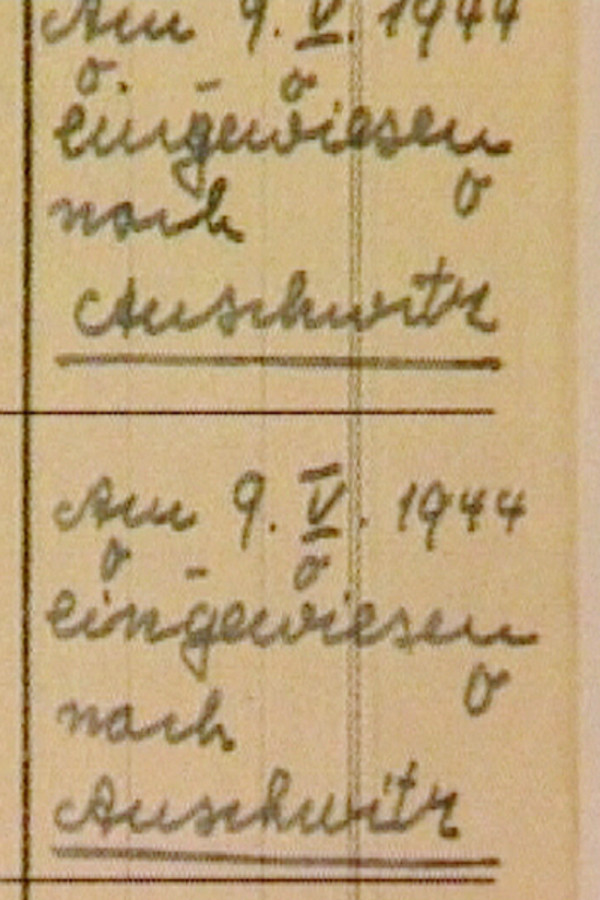 Am 9. V. 1944
eingewiesen
nach
Auschwitz
Am 9. V. 1944
eingewiesen
nach
Auschwitz